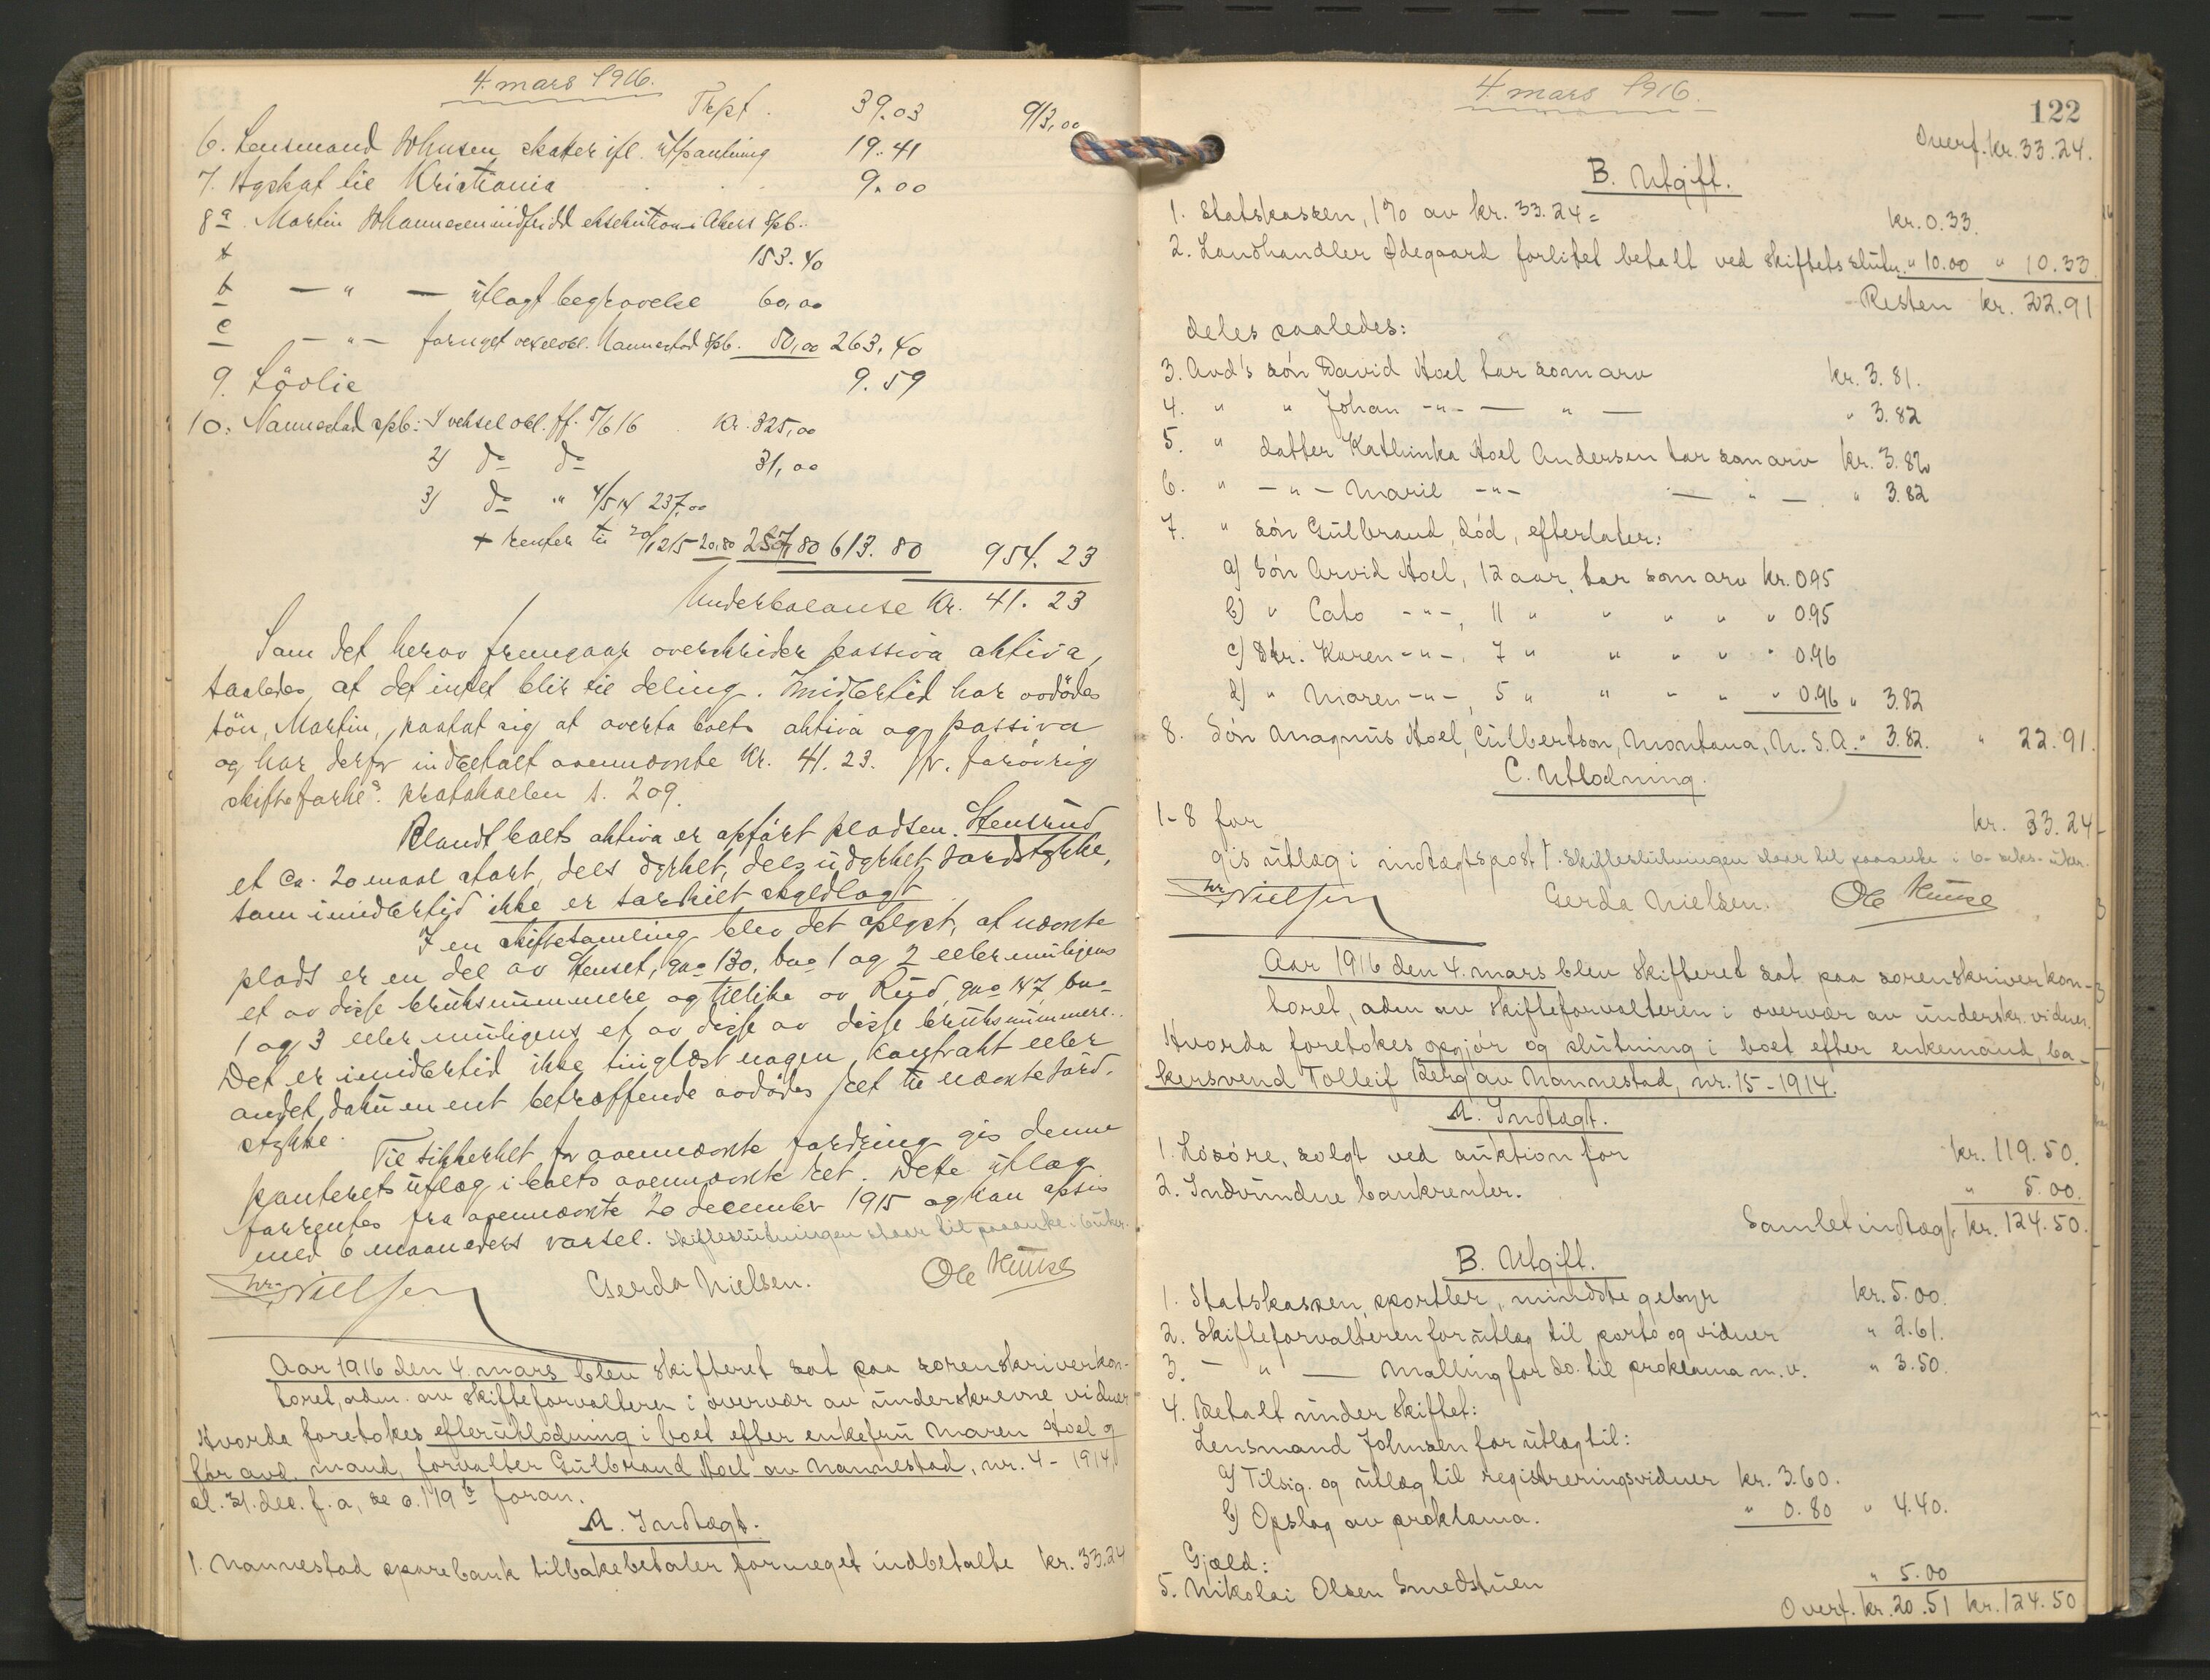 4. mars 1916.
Trpt. 39.03 913,00
6. Lensmand Johnsen skatter ifl. utpantning 19.41
7. Bygskat til Kristiania 9.00
8a. Martin Johannesen indfridd eksekution i Akers Spb.
153.40
b — " — utlagt begravelse 60,00
c — " — fornyet vekselobl. Nannestad Spb. 50,00 263,40
9. Løvlie 9.59
10. Nannestad spb: 1 veksel obl. ff. 5/6 16 Kr. 325,00
2) do do 31,00
3) do " 4/5 14 237,00
+ renter til 20/12 15 20,80 257,80 613.80 954.23
Underbalanse Kr. 41.23
Som det herav fremgaar overskrider passiva aktiva,
saaledes at det intet blir til deling. Imidlertid har avdødes
søn, Martin, paatat sig at overta boets aktiva og passiva
og har derfor indbetalt ovennævnte Kr. 41.23. Jfr. forøvrig
skifteforhs. protokollen s. 209.
Blandt boets aktiva er opført pladsen Stensrud
et ca. 20 maal stort, dels dyrket, dels udyrket jordstykke,
som imidlertid ikke er særskilt skyldlagt.
I en skiftesamling blev det oplyst, at nævnte
plads er en del av Stenset, gno 130, bno 1 og 2 eller muligens
et av disse bruksnummere og tillike av Rud, gno 147, bno
1 og 3 eller muligens et av disse av disse bruksnummere.
Det er imidlertid ikke tinglæst nogen kontrakt eller
andet dokument betræffende avdødes ret til nævnte jord-
stykke.
Til sikkerhet for ovennævnte fordring gis denne
panterets utlæg i boets ovennævnte ret. Dette utlæg
forrentes fra ovennævnte 20 december 1915 og kan opsis
med 6 maaneders varsel. Skifteslutningen staar til paaanke i 6 uker.
Nielsen Gerda Nielsen. Ole Kruse
Aar 1916 den 4. mars blev skifteret sat paa sorenskriverkon-
toret, adm. av skifteforvalteren i overvær av underskrevne vidner
Hvorda foretokes efterutlodning i boet efter enkefru Maren Hoel og
før avd. mand, forvalter Gulbrand Hoel av Nannestad, nr. 4 - 1914,
sl. 31. dec. f. a., se s. 119 b foran.
A. Indtægt.
1. Nannestad sparebank tilbakebetaler formeget indbetalte kr. 33.24
4. mars 1916.
122
Overf. kr. 33.24.
B. Utgift.
1. Statskassen, 1% av kr. 33.24 = kr. 0.33.
2. Landhandler Ødegaard forlitet betalt ved skiftets slutn. " 10.00 " 10.33
Resten kr. 22.91
deles saaledes:
3. Avd's søn David Hoel tar som arv kr. 3.81.
4. " " Johan -"- — " — " 3.82
5. " datter Kathinka Hoel Andersen tar som arv kr. 3.82
6. " - " - Maril -"- — " — " 3.82
7. " søn Gulbrand, død, efterlater:
a) Søn Arvid Hoel, 12 aar, tar som arv kr. 0.95
b) " Cato -"-, 11 " " " " " 0.95
c) Dtr. Karen -"-, 7 " " " " " 0.96
d) " Maren -"-, 5 " " " " " 0.96 " 3.82
8. Søn Magnus Hoel, Culbertson, Montana, U. S. A. " 3.82. " 22.91.
C. Utlodning.
1-8 for kr. 33.24
gis utlæg i indtægtspost 1. Skifteslutningen staar til paaanke i 6 - seks - uker.
Nielsen Gerda Nielsen. Ole Kruse
Aar 1916 den 4. mars blev skifteret sat paa sorenskriverkon-
toret, adm av skifteforvalteren i overvær av underskr. vidner.
Hvorda foretokes opgjør og slutning i boet efter enkemand, ba-
kersvend Tolleif Berg av Nannestad, nr. 15 - 1914.
A. Indtægt.
1. Løsøre, solgt ved auktion for kr. 119.50.
2. Indvundne bankrenter. " 5.00.
Samlet indtægt kr. 124.50.
B. Utgift.
1. Statskassen, sportler, mindste gebyr kr. 5.00.
2. Skifteforvalteren for utlæg til porto og vidner " 2.61.
3. — " — Malling for do. til proklama m. v. " 3.50.
4. Betalt under skiftet:
Lensmand Johnsen for utlæg til:
a) Tilsig. og utlæg til registreringsvidner kr. 3.60.
b) Opslag av proklama. " 0.80 " 4.40.
Gjæld:
5. Nikolai Olsen Smedstuen " 5.00
Overf. kr. 20.51 kr. 124.50